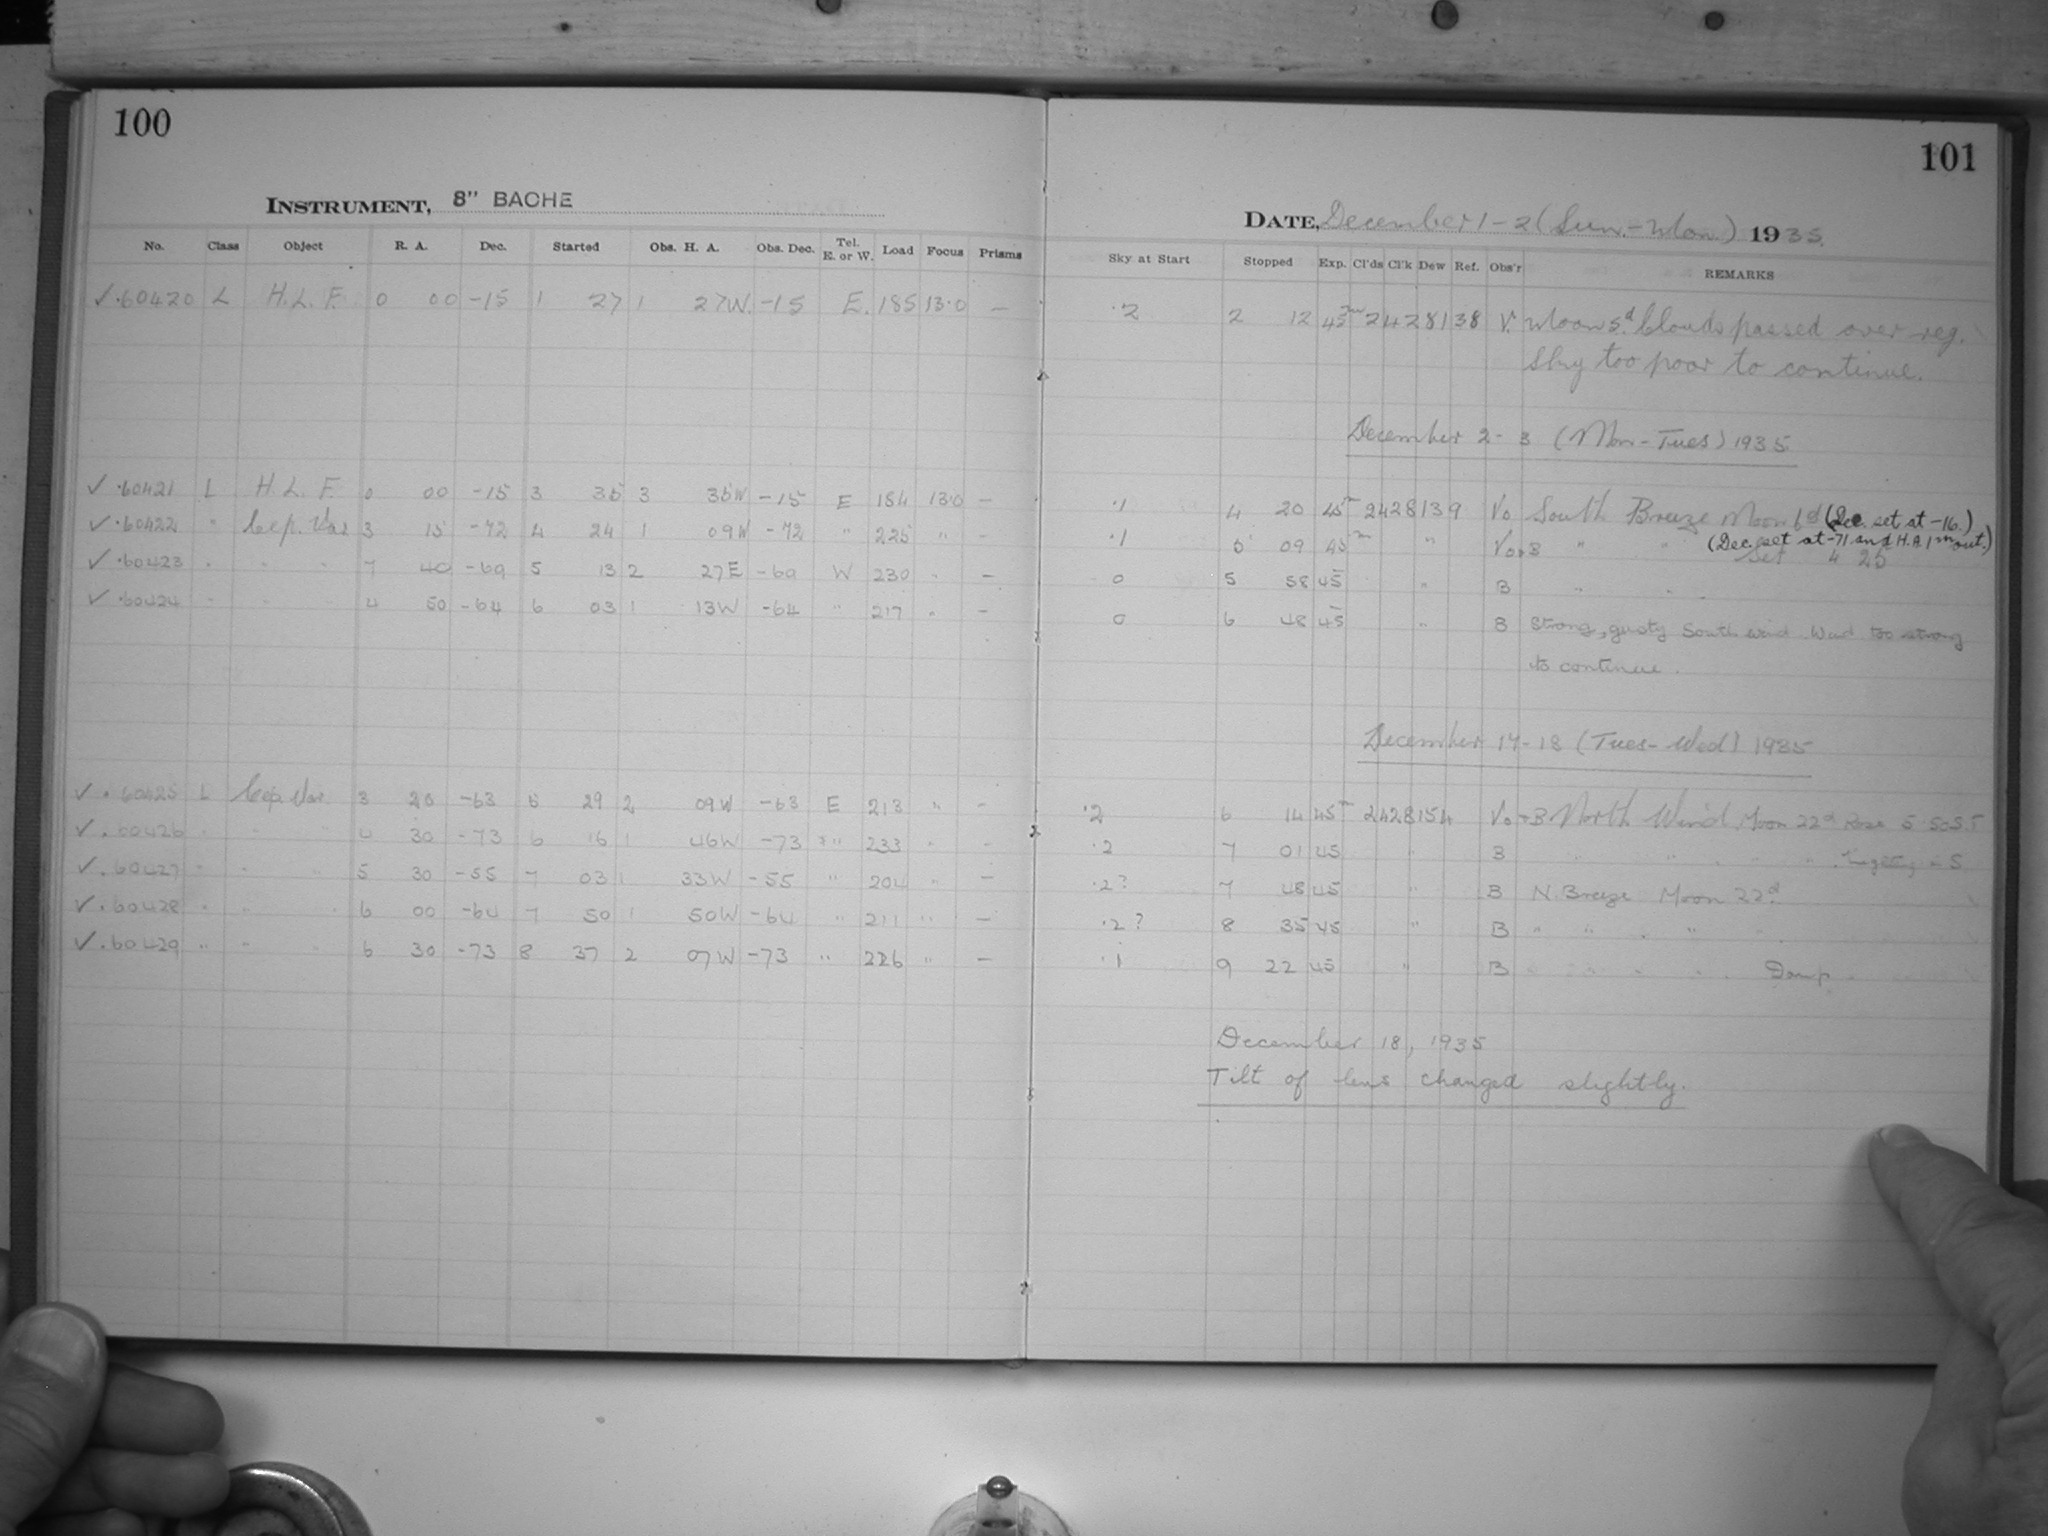 100
INSTRUMENT, 8" BACHE
No. Class Object R. A. Dec. Started Obs. H. A. Obs. Dec. Tel. E. or W. Load Focus Prisms
✓.60420 L H.L.F. 0 00 -15 1 27 1 27W. -15 E. 185 13.0 —
✓.60421 L H.L.F. 0 00 -15 3 35 3 35W -15 E 184 13.0 —
✓.60422 " Cep. Var 3 15 -72 4 24 1 09W -72 " 225 " -
✓.60423 " " " 7 40 -69 5 13 2 27E -69 W 230 " —
✓.60424 " " 4 50 -64 6 03 1 13W -64 " 217 " —
✓.60425 L Cep Var 3 20 -63 5 29 2 09W -63 E 213 " -
✓.60426 " " " 4 30 -73 6 16 1 46W -73 " 233 " -
✓.60427 " " " 5 30 -55 7 03 1 33W -55 " 204 " —
✓.60428 " " 6 00 -64 7 50 1 50W -64 " 211 " —
✓.60429 " " " 6 30 -73 8 37 2 07W -73 " 226 " —
101
DATE, December 1-2 (Sun.-Mon.) 1935.
Sky at Start Stopped Exp. Cl'ds Cl'k Dew Ref. Obs'r REMARKS
.2 2 12 45m 2428138 V. Moon 5d. Clouds passed over reg.
Sky too poor to continue.
December 2-3 (Mon-Tues) 1935
.1 4 20 45m 2428139 Vo South Breeze Moon 6d (Dec. set at -16.)
.1 5 09 45m " Vo+B " " (Dec. set at -71 and H.A. 1m out.)
Set 4 25
0 5 58 45 " B " " "
0 6 48 45 " B Strong, gusty South wind. Wind too strong
to continue.
December 17-18 (Tues-Wed) 1935
.2 6 14 45m 2428154 Vo+B North Wind, Moon 22d Rose 5.50 S.T
.2 7 01 45 " B " " " "
.2? 7 48 45 " B N. Breeze Moon 22d.
.2? 8 35 45 " B " " " "
.1 9 22 45 " B " " " " Damp
December 18, 1935
Tilt of lens changed slightly.